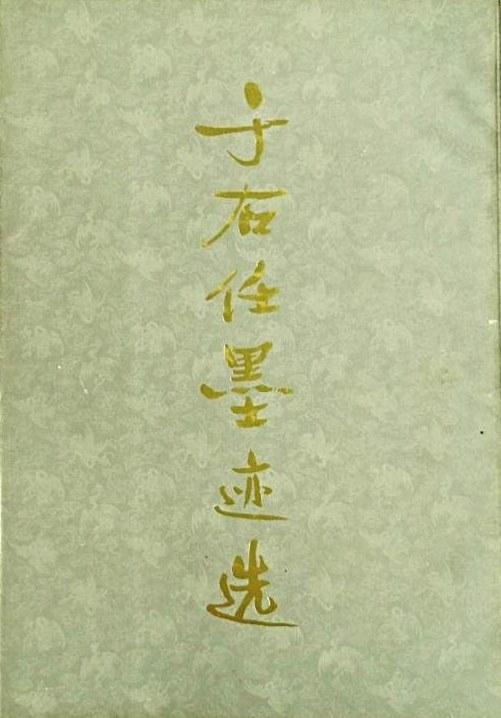 于右任墨迹选